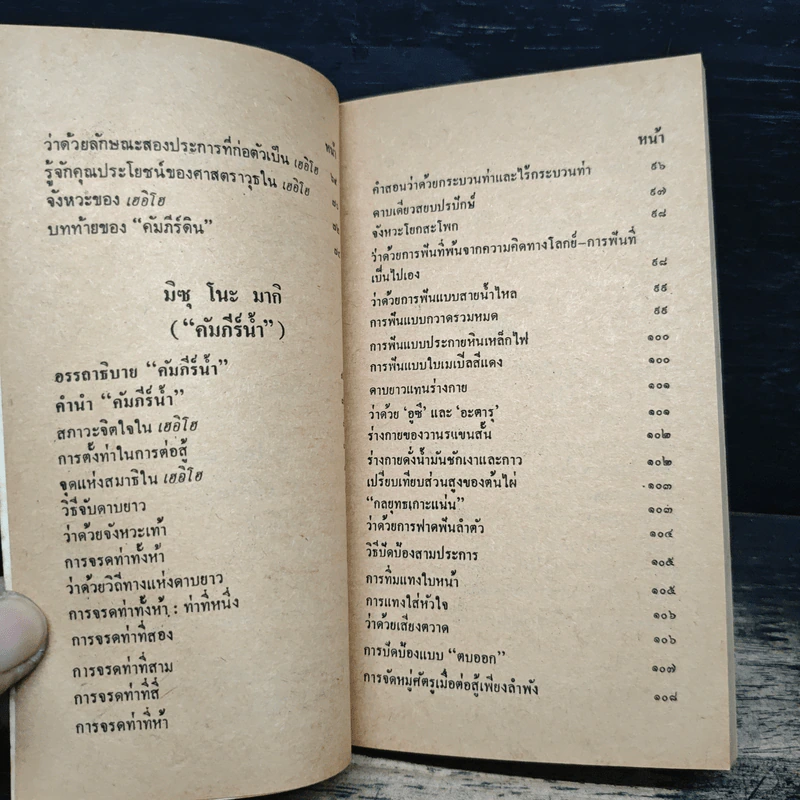 หน้า
ว่าด้วยลักษณะสองประการที่ก่อตัวเป็น เฮอิโฮ
รู้จักคุณประโยชน์ของศาสตราวุธใน เฮอิโฮ
จังหวะของ เฮอิโฮ
บทท้ายของ “คัมภีร์ดิน”
มิซุ โนะ มากิ
(“คัมภีร์น้ำ”)
อรรถาธิบาย “คัมภีร์น้ำ”
คำนำ “คัมภีร์น้ำ”
สภาวะจิตใจใน เฮอิโฮ
การตั้งท่าในการต่อสู้
จุดแห่งสมาธิใน เฮอิโฮ
วิธีจับดาบยาว
ว่าด้วยจังหวะเท้า
การจรดท่าทั้งห้า
ว่าด้วยวิถีทางแห่งดาบยาว
การจรดท่าทั้งห้า : ท่าที่หนึ่ง
การจรดท่าที่สอง
การจรดท่าที่สาม
การจรดท่าที่สี่
การจรดท่าที่ห้า
หน้า
คำสอนว่าด้วยกระบวนท่าและไร้กระบวนท่า ๙๖
ดาบเดียวสยบปรปักษ์ ๙๗
จังหวะโยกสะโพก ๙๘
ว่าด้วยการฟันที่พ้นจากความคิดทางโลกย์–การฟันที่
เป็นไปเอง ๙๘
ว่าด้วยการฟันแบบสายน้ำไหล ๙๙
การฟันแบบกวาดรวมหมด ๙๙
การฟันแบบประกายหินเหล็กไฟ ๑๐๐
การฟันแบบใบเมเปิลสีแดง ๑๐๐
ดาบยาวแทนร่างกาย ๑๐๑
ว่าด้วย ‘อูซี’ และ ‘อะตารุ’ ๑๐๑
ร่างกายของวานรแขนสั้น ๑๐๒
ร่างกายดั่งน้ำมันชักเงาและกาว ๑๐๒
เปรียบเทียบส่วนสูงของต้นไผ่ ๑๐๓
“กลยุทธเกาะแน่น” ๑๐๓
ว่าด้วยการฟาดฟันลำตัว ๑๐๔
วิธีปัดป้องสามประการ ๑๐๕
การทิ่มแทงใบหน้า ๑๐๕
การแทงใส่หัวใจ ๑๐๖
ว่าด้วยเสียงตวาด ๑๐๖
การปัดป้องแบบ “ตบออก” ๑๐๗
การจัดหมู่ศัตรูเมื่อต่อสู้เพียงลำพัง ๑๐๘